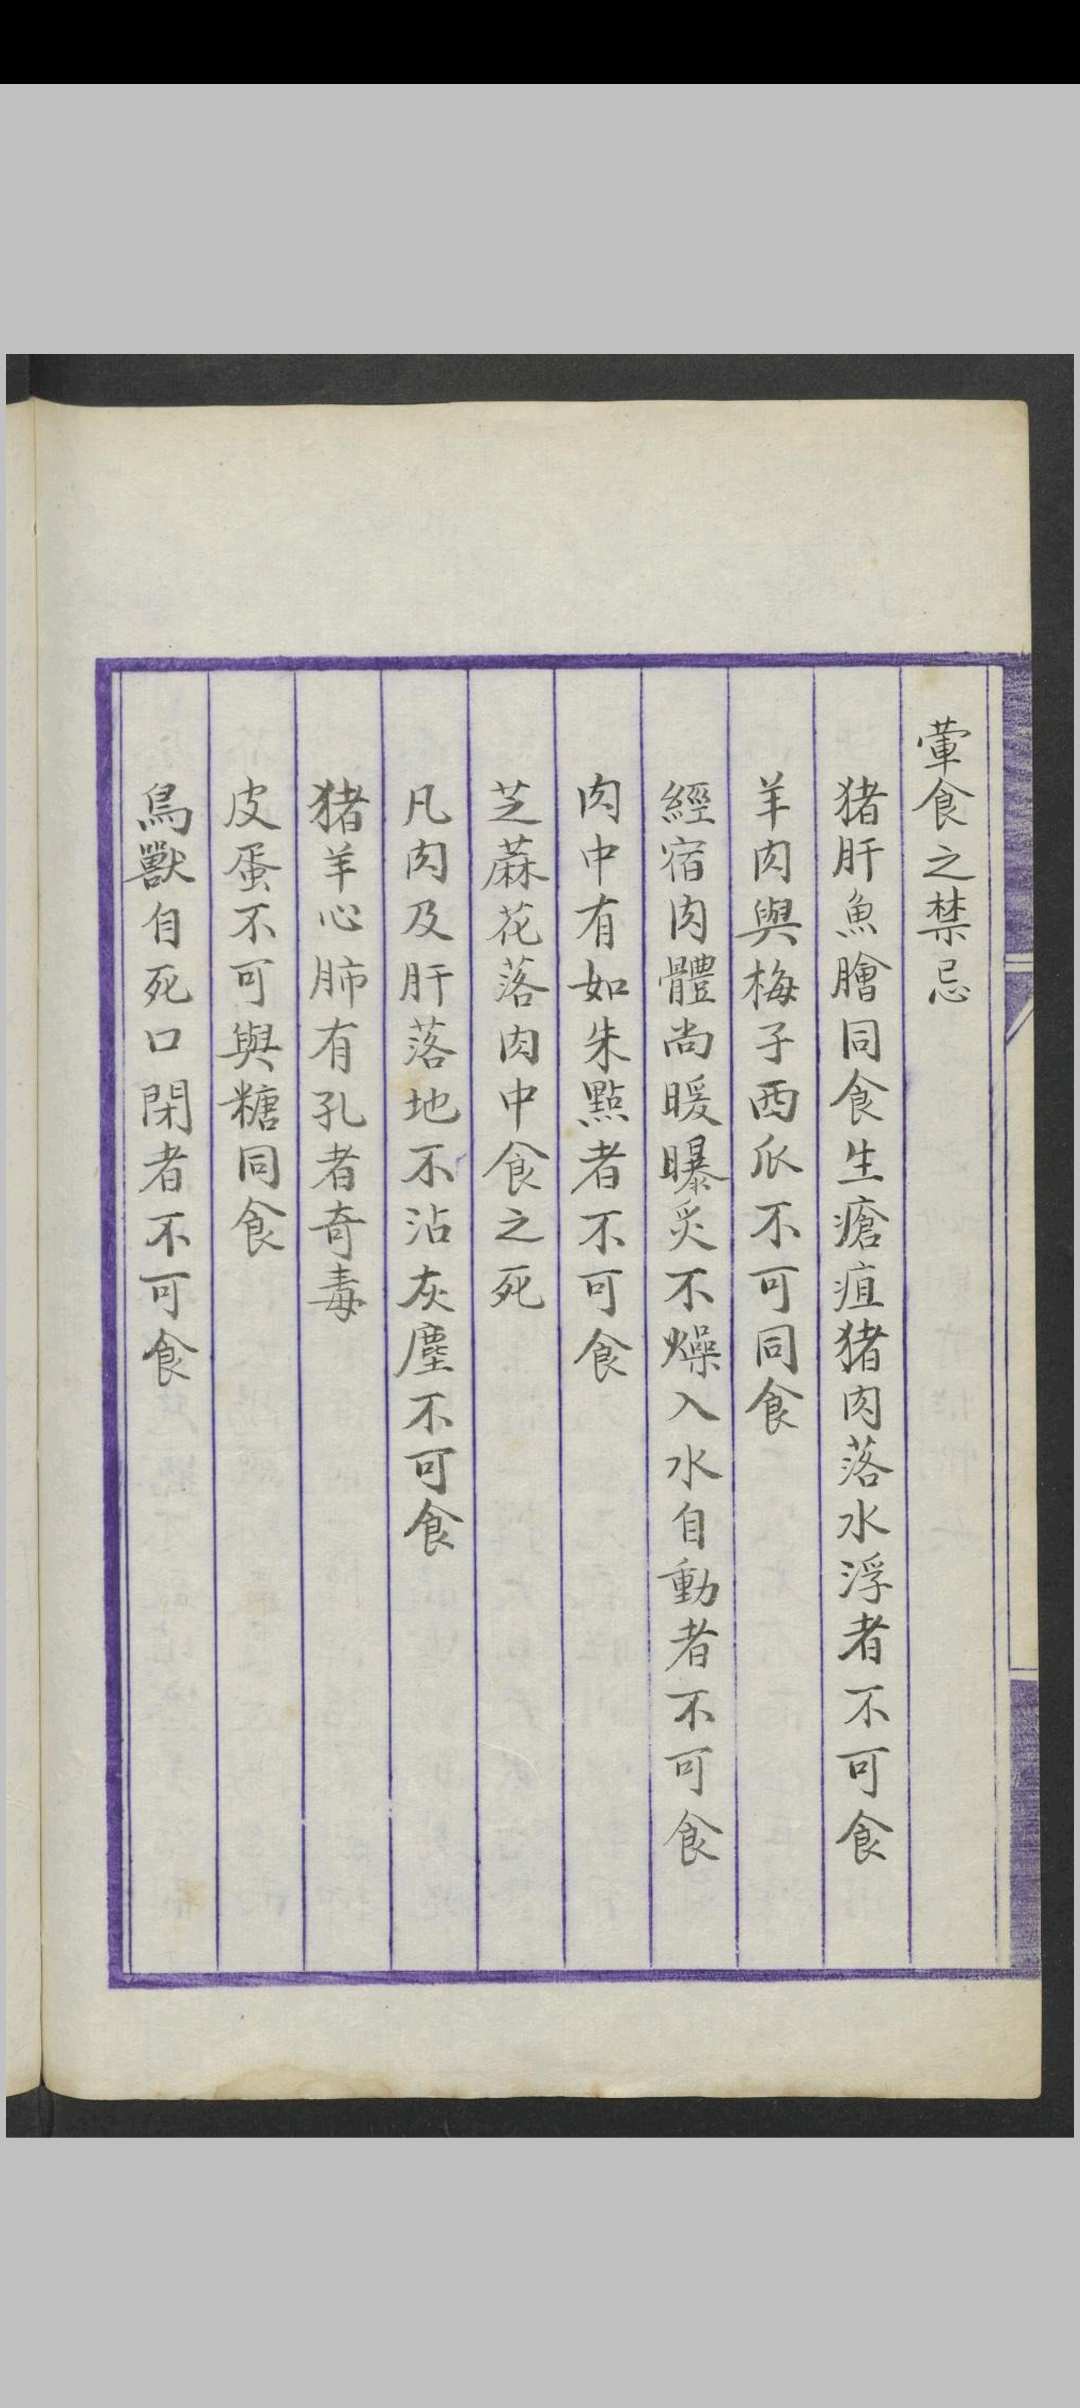 葷食之禁忌
猪肝魚膾同食生瘡疽猪肉落水浮者不可食
羊肉與梅子西瓜不可同食
經宿肉體尚暖曝炙不燥入水自動者不可食
肉中有如朱點者不可食
芝蔴花落肉中食之死
凡肉及肝落地不沾灰塵不可食
猪羊心肺有孔者奇毒
皮蛋不可與糖同食
鳥獸自死口閉者不可食